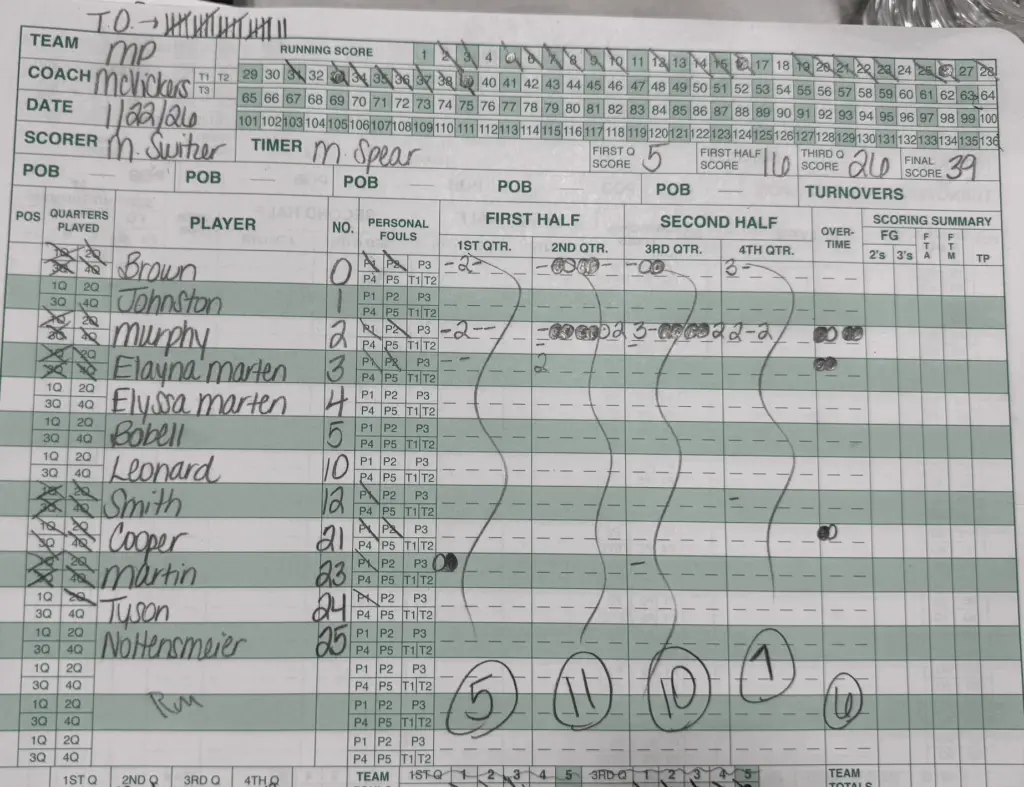 T.O. →
TEAM MP RUNNING SCORE 1 2 3 4 5 6 7 8 9 10 11 12 13 14 15 16 17 18 19 20 21 22 23 24 25 26 27 28
COACH McVickars T1 T2 T3 29 30 31 32 33 34 35 36 37 38 39 40 41 42 43 44 45 46 47 48 49 50 51 52 53 54 55 56 57 58 59 60 61 62 63 64
DATE 1/22/26 65 66 67 68 69 70 71 72 73 74 75 76 77 78 79 80 81 82 83 84 85 86 87 88 89 90 91 92 93 94 95 96 97 98 99 100
101 102 103 104 105 106 107 108 109 110 111 112 113 114 115 116 117 118 119 120 121 122 123 124 125 126 127 128 129 130 131 132 133 134 135 136
SCORER M. Switzer TIMER M. Spear FIRST Q SCORE 5 FIRST HALF SCORE 16 THIRD Q SCORE 26 FINAL SCORE 39
POB POB POB POB POB TURNOVERS
POS QUARTERS PLAYED PLAYER NO. PERSONAL FOULS FIRST HALF SECOND HALF OVER-TIME SCORING SUMMARY
1ST QTR. 2ND QTR. 3RD QTR. 4TH QTR. FG 2's 3's FTA FTM TP
1Q 2Q P1 P2 P3
3Q 4Q Brown 0 P4 P5 T1 T2 -2- 3-
1Q 2Q P1 P2 P3
3Q 4Q Johnston 1 P4 P5 T1 T2
1Q 2Q P1 P2 P3
3Q 4Q Murphy 2 P4 P5 T1 T2 -2-- 2 3- 2 2-2
1Q 2Q P1 P2 P3
3Q 4Q Elayna Marten 3 P4 P5 T1 T2 -- 2
1Q 2Q P1 P2 P3
3Q 4Q Elyssa Marten 4 P4 P5 T1 T2
1Q 2Q P1 P2 P3
3Q 4Q Bobell 5 P4 P5 T1 T2
1Q 2Q P1 P2 P3
3Q 4Q Leonard 10 P4 P5 T1 T2
1Q 2Q P1 P2 P3
3Q 4Q Smith 12 P4 P5 T1 T2 -
1Q 2Q P1 P2 P3
3Q 4Q Cooper 21 P4 P5 T1 T2
1Q 2Q P1 P2 P3
3Q 4Q Martin 23 P4 P5 T1 T2 -
1Q 2Q P1 P2 P3
3Q 4Q Tyson 24 P4 P5 T1 T2
1Q 2Q P1 P2 P3
3Q 4Q Nottensmeier 25 P4 P5 T1 T2
1Q 2Q P1 P2 P3
3Q 4Q P4 P5 T1 T2 5 11 10 7 6
1Q 2Q P1 P2 P3
3Q 4Q P4 P5 T1 T2
1Q 2Q P1 P2 P3
3Q 4Q P4 P5 T1 T2
1ST Q 2ND Q 3RD Q 4TH Q TEAM 1ST Q 1 2 3 4 5 3RD Q 1 2 3 4 5 TEAM